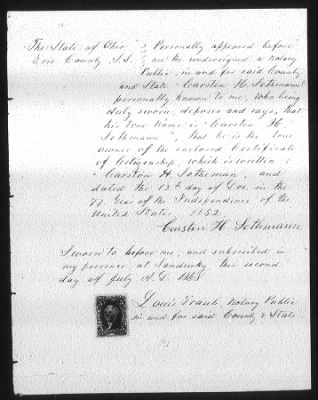 The State of Ohio } Personally appeared before
Erie County S.S. } me the undersigned a notary
Public in and for said County
and State "Carsten H. Sothmann"
personally known to me, who being
duly sworn, deposes and says, that
his true name is "Carsten H.
Sothmann", that he is the true
owner of the enclosed Certificate
of Citizenship, which is written:
"Carston H Sotheman, and
dated the 13th day of Dec. in the
77 Year of the Independence of the
United States, 1852.
Carsten H. Sothmann
Sworn to before me, and subscribed in
my presence, at Sandusky this second
day of July A.D. 1863
Louis Traub, Notary Public
in and for said County & State